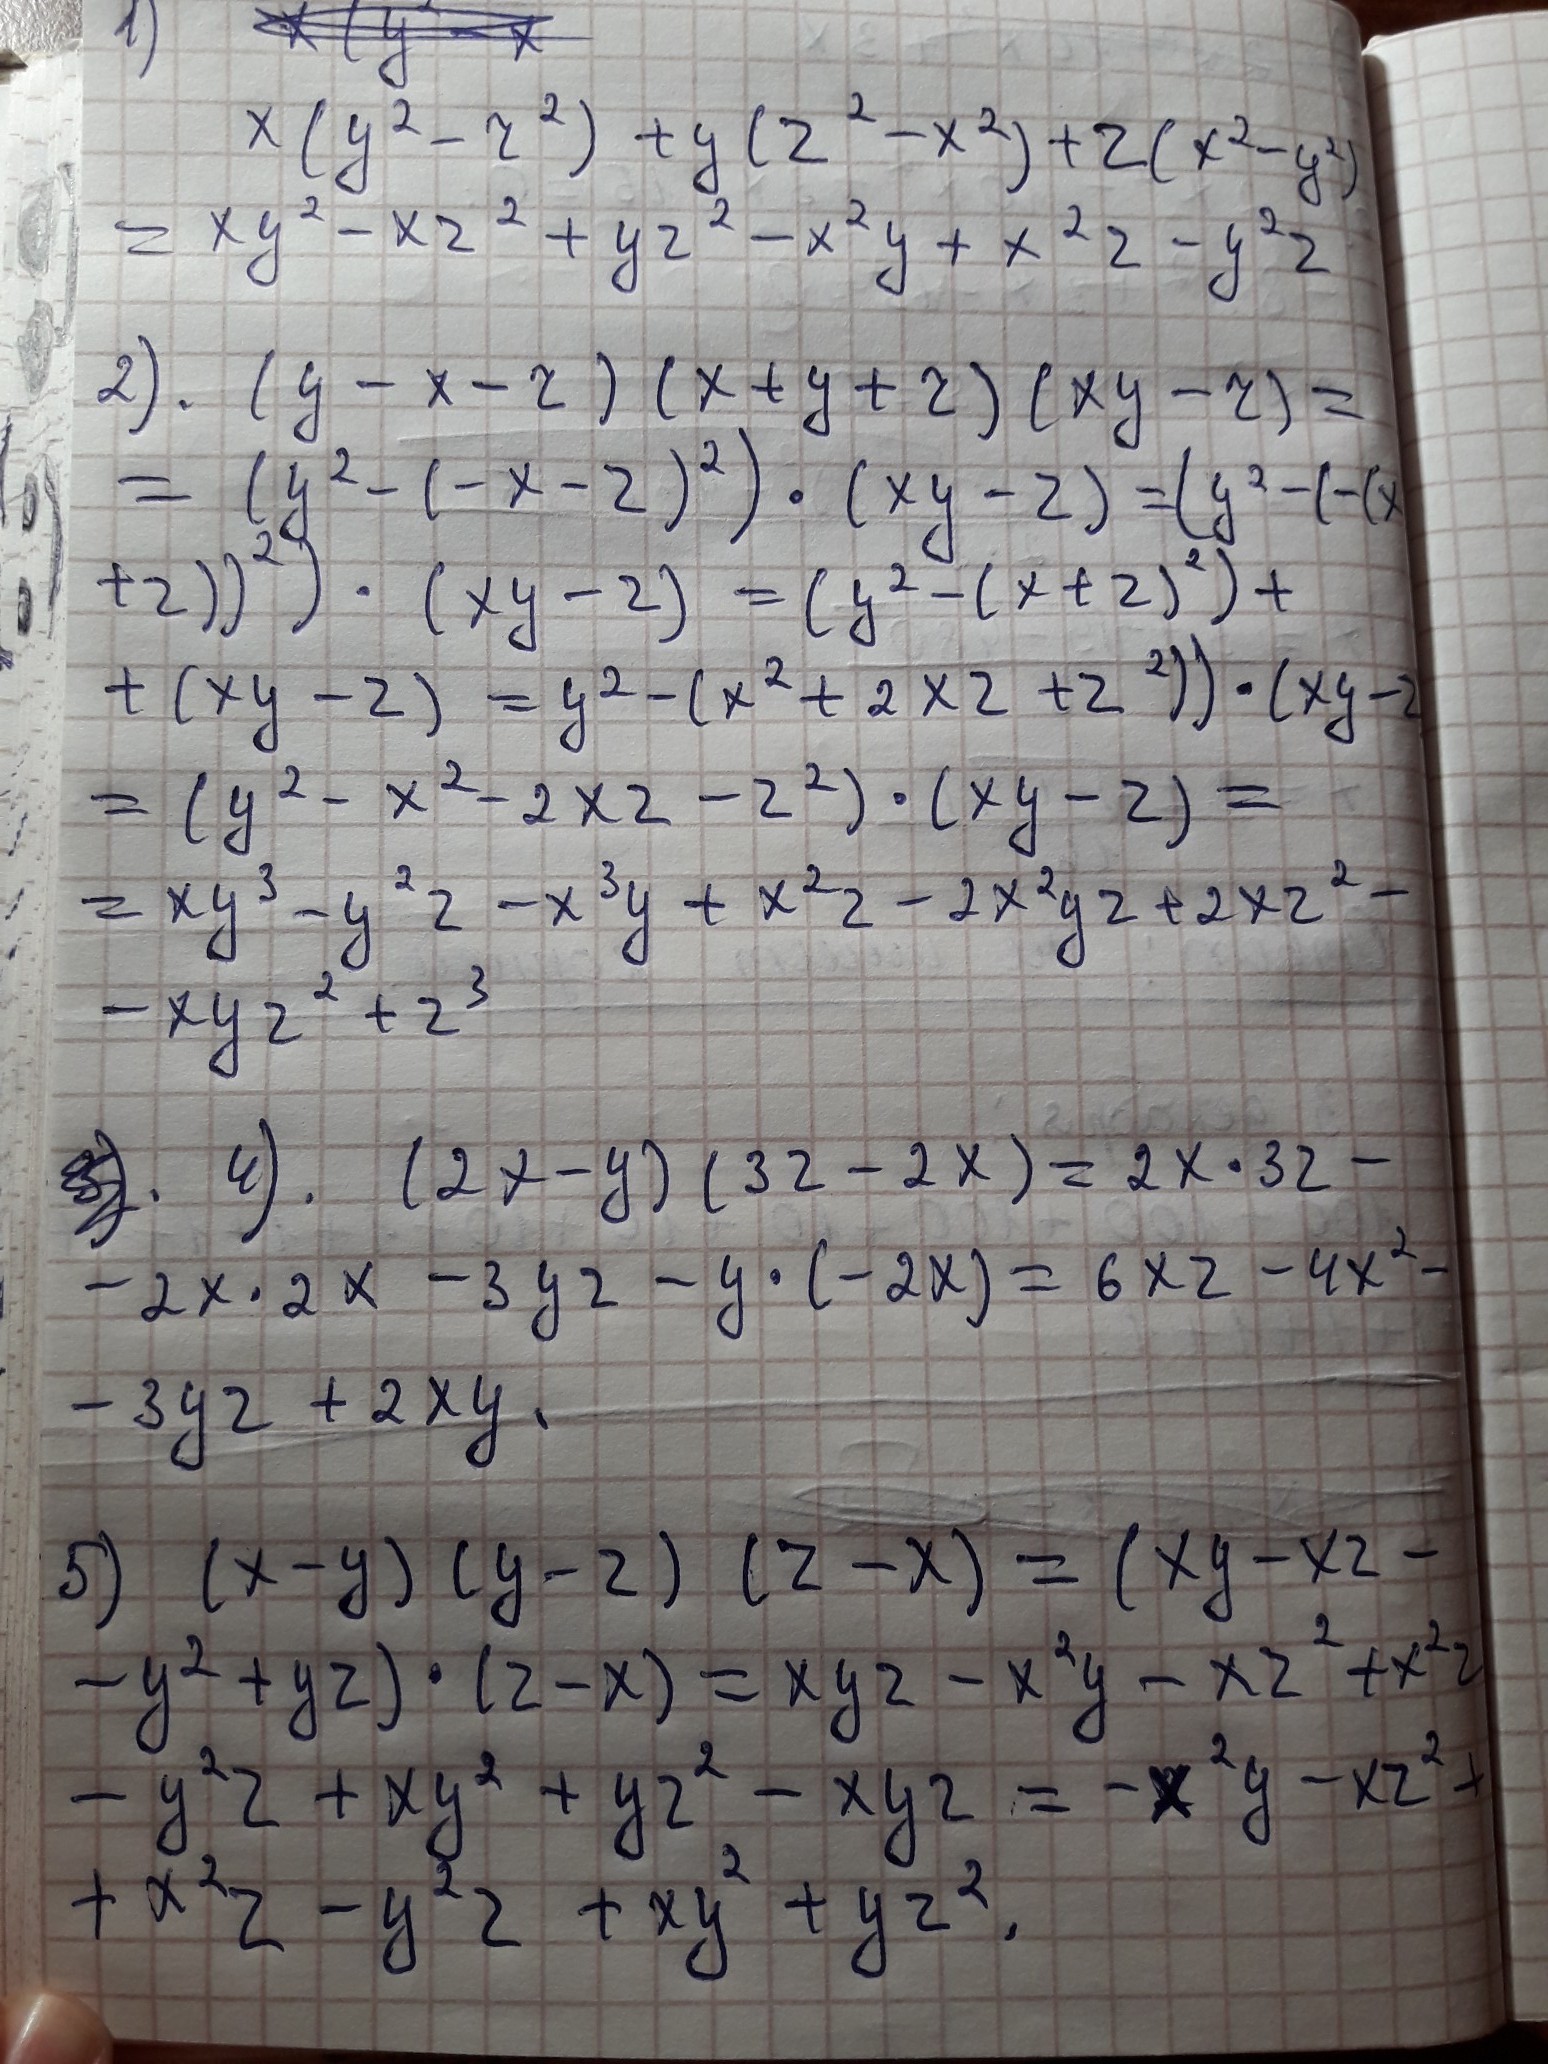 1)
x(y² - z²) + y(z² - x²) + z(x² - y²)
= xy² - xz² + yz² - x²y + x²z - y²z
2). (y - x - z)(x + y + z)(xy - z) =
= (y² - (-x - z)²) · (xy - z) = (y² - (-(x
+z))²) · (xy - z) = (y² - (x + z)²) +
+ (xy - z) = y² - (x² + 2xz + z²)) · (xy - z
= (y² - x² - 2xz - z²) · (xy - z) =
= xy³ - y²z - x³y + x²z - 2x²yz + 2xz² -
- xyz² + z³
4). (2x - y)(3z - 2x) = 2x · 3z -
- 2x · 2x - 3yz - y · (-2x) = 6xz - 4x² -
- 3yz + 2xy.
5) (x - y)(y - z)(z - x) = (xy - xz -
- y² + yz) · (z - x) = xyz - x²y - xz² + x²z
- y²z + xy² + yz² - xyz = -x²y - xz² +
+ x²z - y²z + xy² + yz².